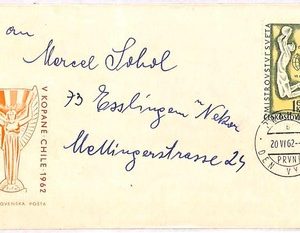 an
Marcel Sohol
73 Esslingen a/Nekar
Mettingerstrasse 24
V KOPANÉ - CHILE 1962
OVENSKÁ POŠTA
MISTROVSTVÍ SVĚTA
20 VI 62
PRVNÍ
DEN
VY